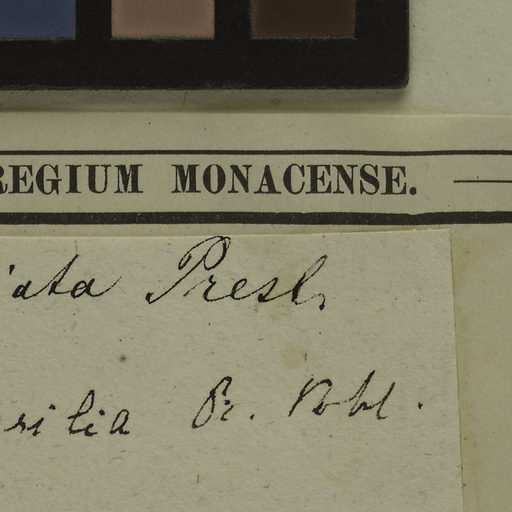 REGIUM MONACENSE.
iata Presl.
silia Dr. Pohl.